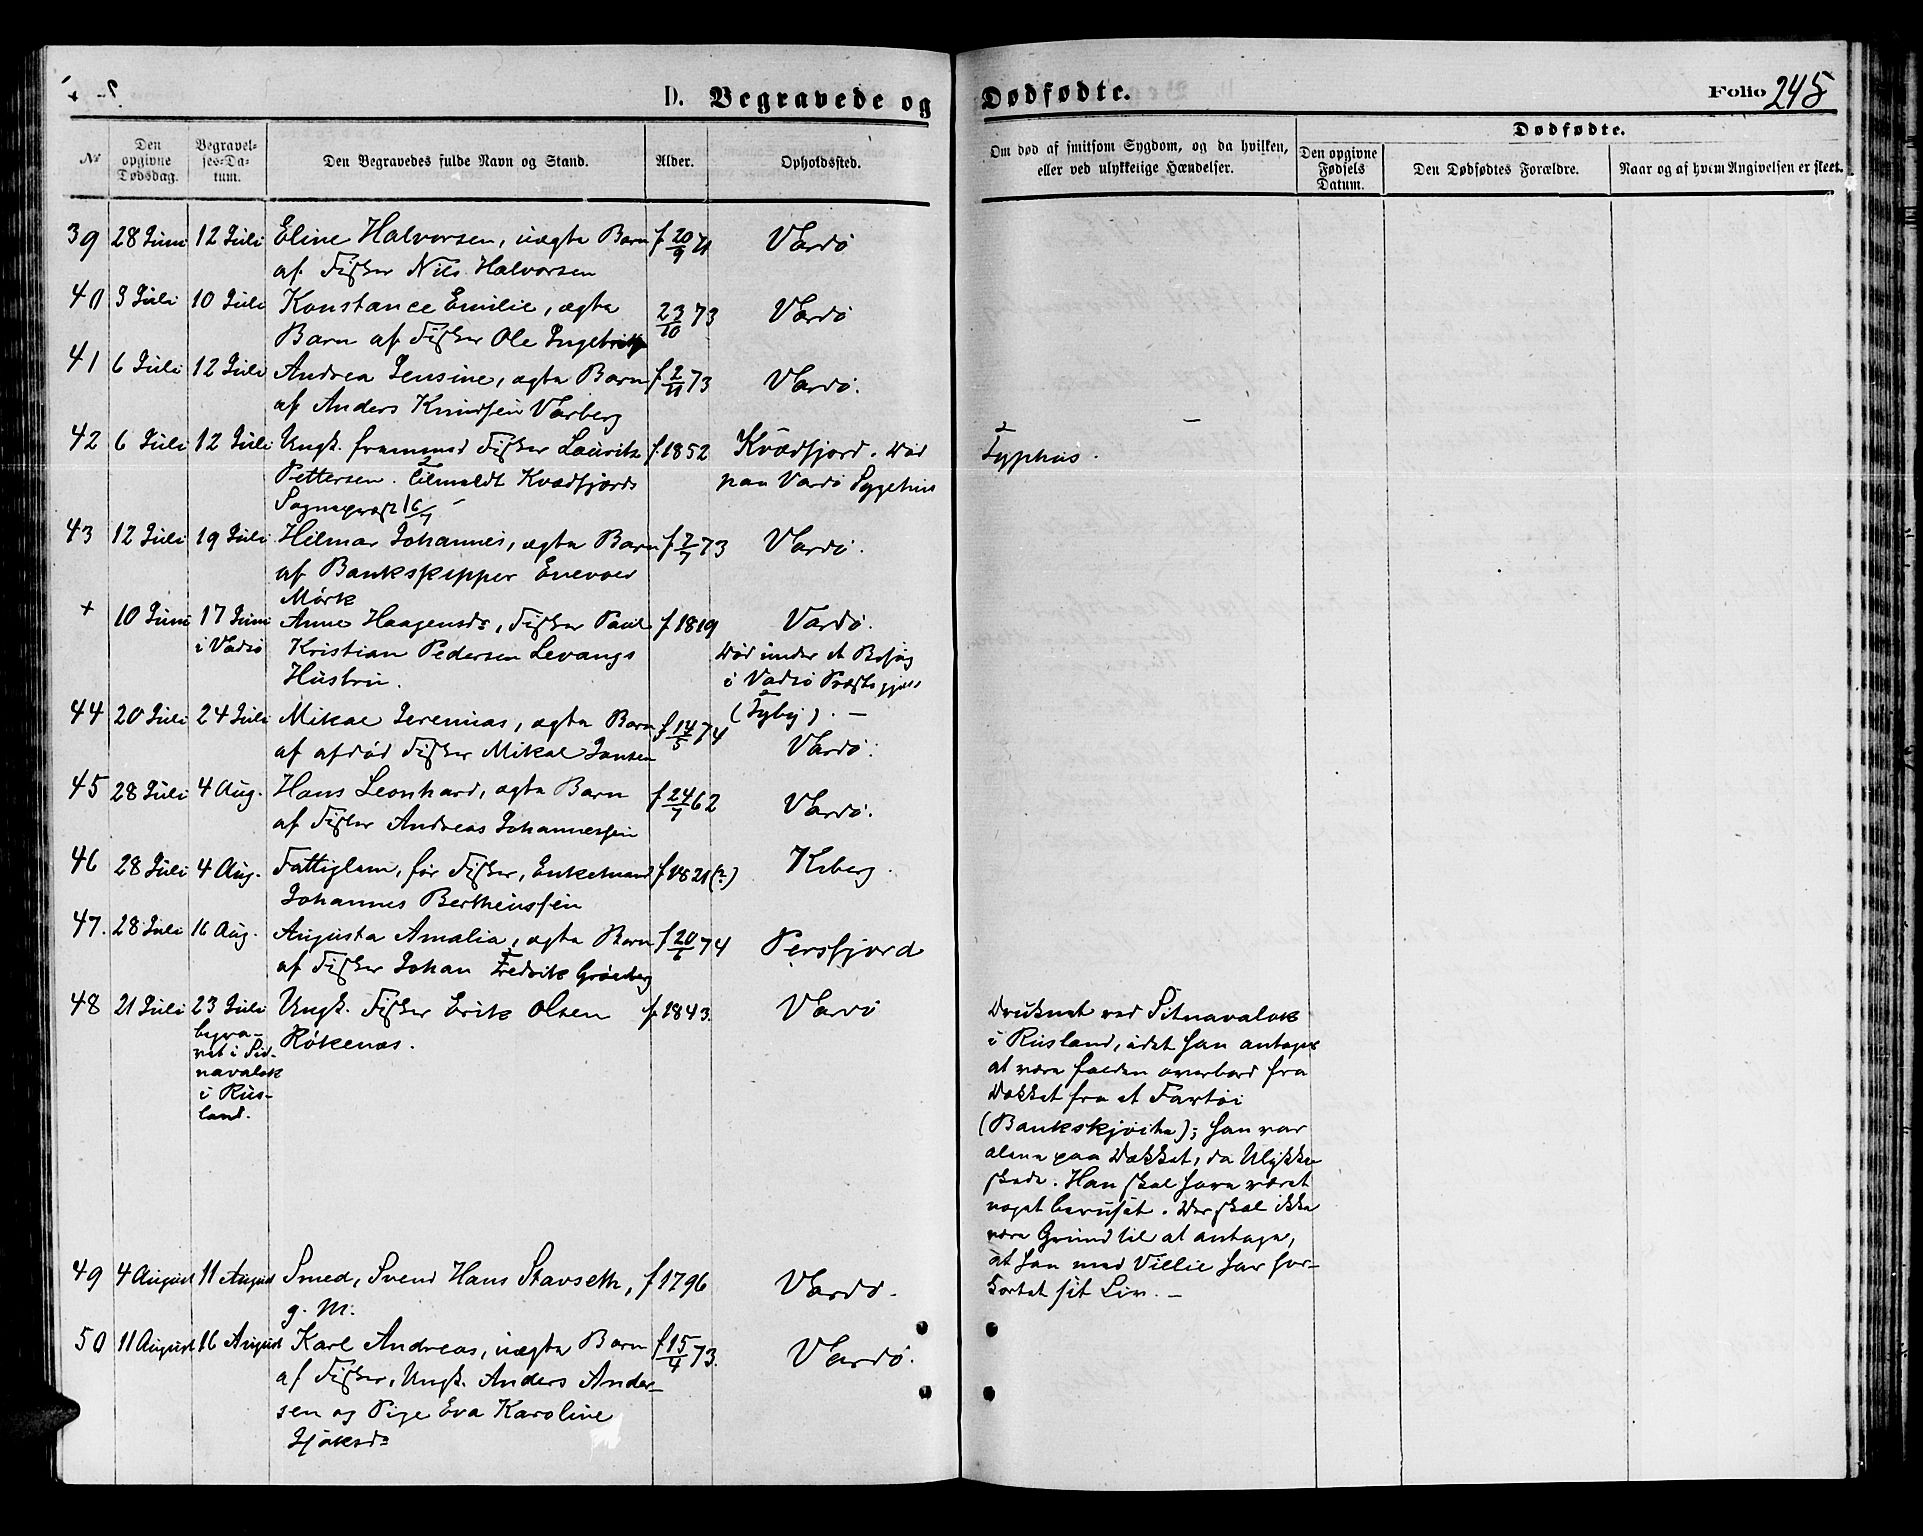 D. Begravede og Dødfødte. Folio 245
No
Den opgivne Dødsdag.
Begravelses-Datum.
Den Begravedes fulde Navn og Stand.
Alder.
Opholdssted.
Om død af smitsom Sygdom, og da hvilken, eller ved ulykkelige Hændelser.
Dødfødte.
Den opgivne Fødsels Datum.
Den Dødfødtes Forældre.
Naar og af hvem Angivelsen er skeet.
39 28 Juni 12 Juli Eline Halvorsen, uægte Barn f 20/9 71 Vardö
af Fisker Nils Halvorsen
40 3 Juli 10 Juli Konstance Emilie, ægte 23/10 73 Vardö
Barn af Fisker Ole
41 6 Juli 12 Juli Andrea Jensine, ægte Barn f 2/11 73 Vardö.
af Anders Knudsen Varberg
42 6 Juli 12 Juli Ungk. fremmed Fisker Lauritz f. 1852 Kvædfjord. Död Typhus.
Pettersen. Tilmeldt Kvædfjords paa Vardö Sygehus
Sogneprest 16/7
43 12 Juli 19 Juli Hilmar Johannes, ægte Barn f 2/7 73 Vardö.
af Bankskipper Enevold
Mörk
+ 10 Juni 17 Juni Anne Haagensdr, Fisker Paul f 1819 Vardö.
i Vadsö Kristian Pedersen Levangs Död under et Besög
Hustru. i Vadsö Præstegjeld
44 20 Juli 24 Juli Mikal Jeremias, ægte Barn f 14/5 74 (Tyby). —
af afdöd Fisker Mikal Jansen Vardö.
45 28 Juli 4 Aug. Hans Leonhard, ægte Barn f 24/7 62 Vardö.
af Fisker Andreas Johannessen
46 28 Juli 4 Aug. Fattiglem, för Fisker, Enkemand f 1821(?) Kiberg.
Johannes Bertheussen
47. 28 Juli 16 Aug. Augusta Amalia, ægte Barn f 20/6 74 Persfjord
af Fisker Johan Fredrik
48 21 Juli 23 Juli Ungk. Fisker Erik Olsen f. 1843. Vardö Druknet ved Sitnavalok
begra- Rökenæs. i Rusland, idet han antages
vet i Sid- at være falden overbord fra
navalok Dækket fra et Fartöi
i Rus- (Bankskjöite); han var
land. alene paa Dækket, da Ulykken
skede. Han skal have været
noget beruset. Der skal ikke
være Grund til at antage,
at han med Villie har for-
49 4 August 11 August Smed, Svend Hans Stavseth, f 1796 Vardö. kortet sit Liv. —
g. M.
50 11 August 16 August Karl Andreas, uægte Barn f 15/4 73. Vardö.
af Fisker, Ungk. Anders Ander-
sen og Pige Eva Karoline